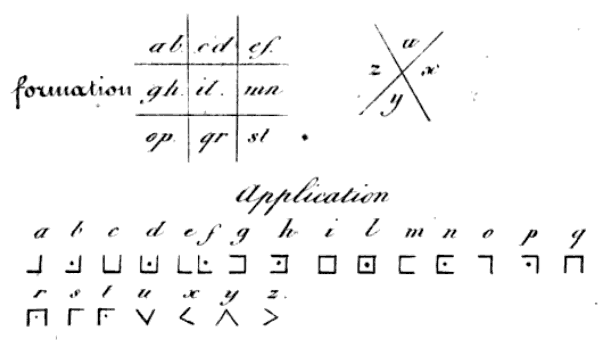 ab. cd ef.
formation gh. il. mn
op. qr st
u
z x
y
Application
a b c d e f g h i l m n o p q
r s t u x y z.